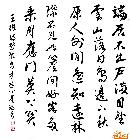 端居不出户满目望
云山落日鸟边下秋
原人外闲遥知远林际
不见此檐间好客多
乘月应门莫上关